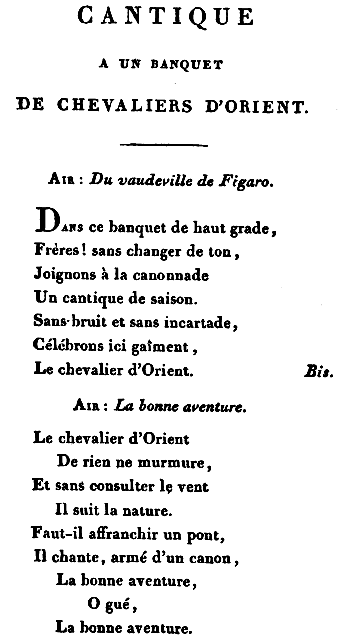 CANTIQUE
A UN BANQUET
DE CHEVALIERS D'ORIENT.
AIR : Du vaudeville de Figaro.
DANS ce banquet de haut grade,
Frères! sans changer de ton,
Joignons à la canonnade
Un cantique de saison.
Sans bruit et sans incartade,
Célébrons ici gaîment,
Le chevalier d'Orient. Bis.
AIR : La bonne aventure.
Le chevalier d'Orient
De rien ne murmure,
Et sans consulter le vent
Il suit la nature.
Faut-il affranchir un pont,
Il chante, armé d'un canon,
La bonne aventure,
O gué,
La bonne aventure.